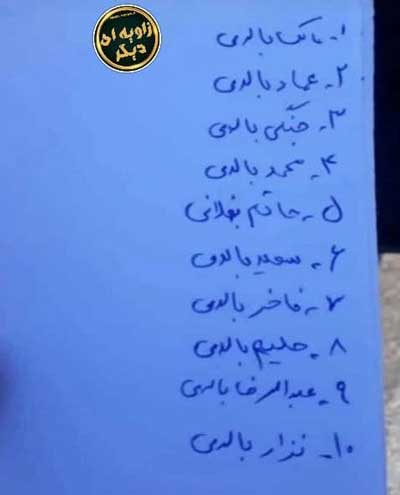 زاویه ای
دیگر
۱- مالک بالدی
۲- عماد بالدی
۳- جنگی بالدی
۴- محمد بالدی
۵- حاتم بغلانی
۶- سعید بالدی
۷- فاخر بالدی
۸- حلیم بالدی
۹- عبدالرضا بالدی
۱۰- نزار بالدی